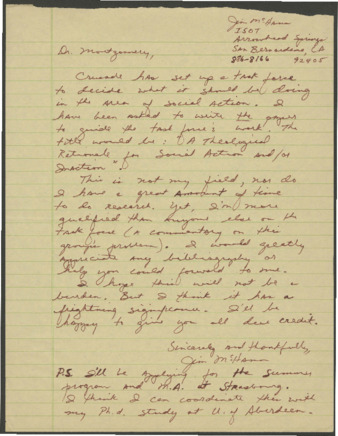 Jim McHann
ISOT
Arrowhead Springs
San Bernardino, CA
886-8166 92405
Dr. Montgomery,
Crusade has set up a task force
to decide what it should be doing
in the area of social action. I
have been asked to write the paper
to guide the task force's work. The
title would be: "A Theological
Rationale for Social Action and/or
Inaction."
This is not my field, nor do
I have a great amount of time
to do research. Yet, I'm more
qualified than anyone else on the
task force (a commentary on the
group's problem). I would greatly
appreciate any bibliography or
help you could forward to me.
I hope this will not be a
burden. But I think it has a
frightening significance. I'll be
happy to give you all due credit.
Sincerely and thankfully,
Jim McHann
P.S. I'll be applying for the summer
program and M.A. at Strasbourg.
I think I can coordinate this with
my Ph.d. study at U. of Aberdeen.